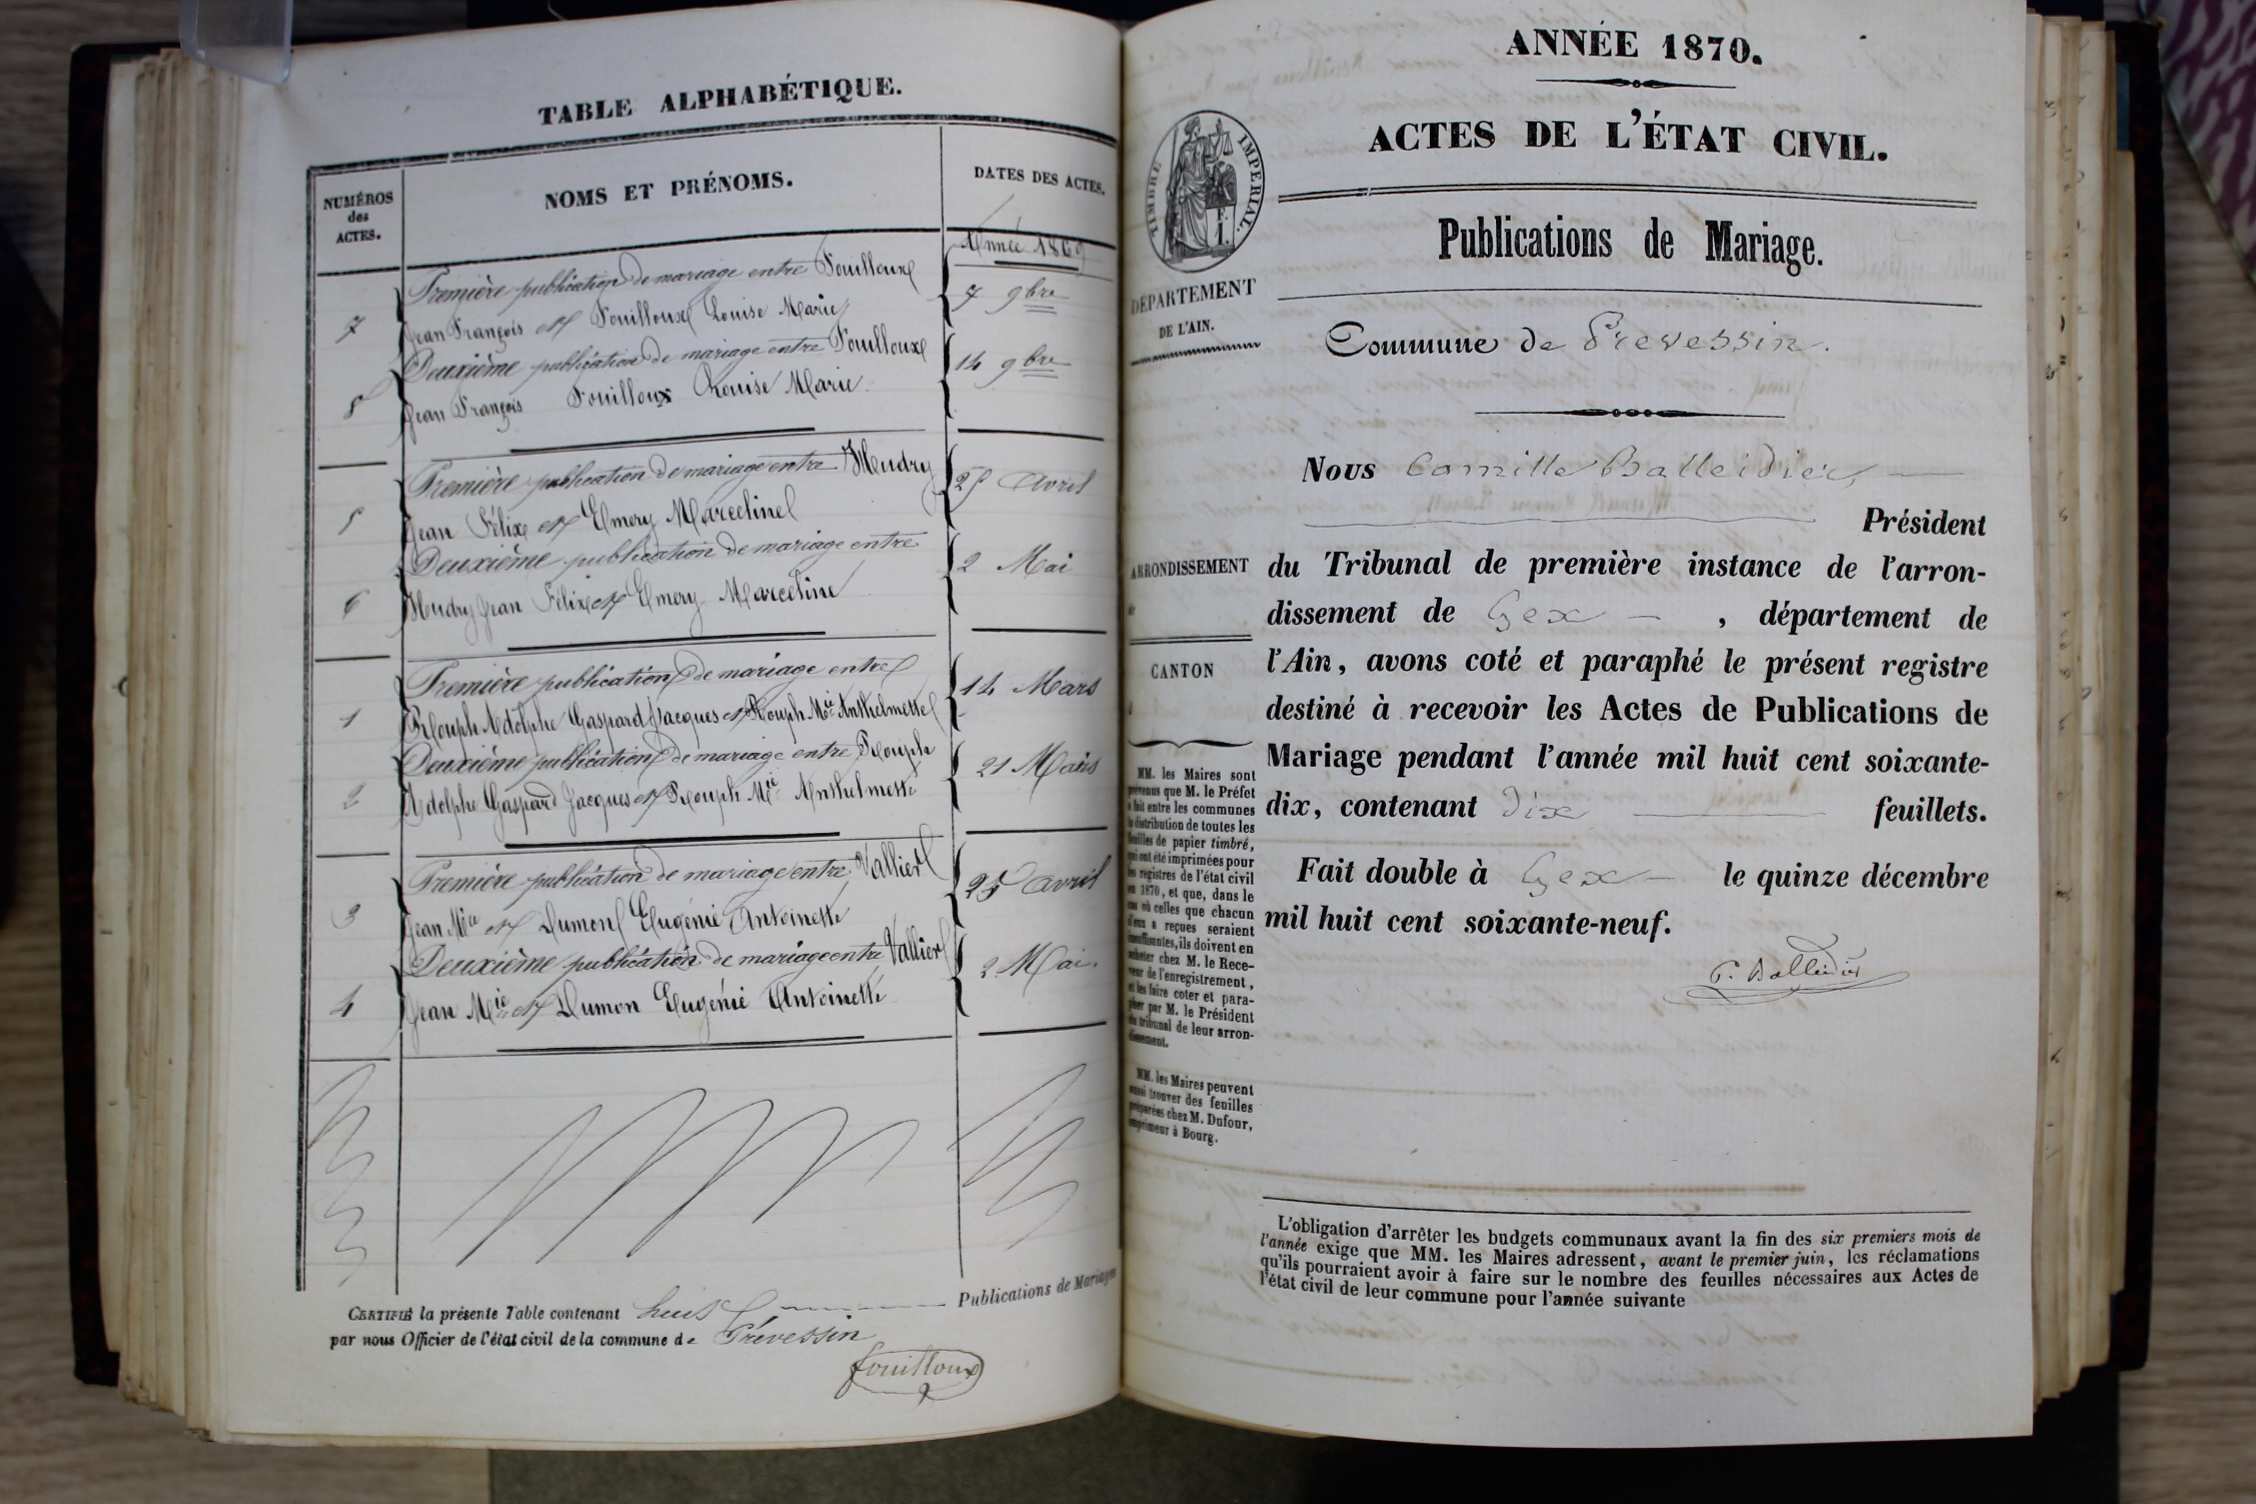 TABLE ALPHABÉTIQUE.
NUMÉROS
des
ACTES.
NOMS ET PRÉNOMS.
DATES DES ACTES.
Année 1869
Première publication de mariage entre Fouilloux
7 Jean François et Fouilloux Louise Marie
7 9bre
Deuxième publication de mariage entre Fouilloux
8 Jean François Fouilloux Louise Marie
14 9bre
Première publication de mariage entre Hudry
5 Jean Félix et Emery Marceline
25 Avril
Deuxième publication de mariage entre
6 Hudry Jean Félix et Emery Marceline
2 Mai
Première publication de mariage entre
1 Rouph Adolphe Gaspard Jacques et Rouph Mie Anthelmette
14 Mars
Deuxième publication de mariage entre Rouph
2 Adolphe Gaspard Jacques et Rouph Mie Anthelmette
21 Mars
Première publication de mariage entre Vallier
3 Jean Mie et Dumon Eugénie Antoinette
25 Avril
Deuxième publication de mariage entre Vallier
4 Jean Mie et Dumon Eugénie Antoinette
2 Mai.
CERTIFIÉ la présente Table contenant huit Publications de Mariages
par nous Officier de l'état civil de la commune de Prévessin
Fouilloux
ANNÉE 1870.
ACTES DE L'ÉTAT CIVIL.
TIMBRE IMPÉRIAL.
Publications de Mariage.
DÉPARTEMENT
DE L'AIN.
Commune de Prevessin.
Nous Camille Balleidier,
Président
ARRONDISSEMENT
du Tribunal de première instance de l'arron-
dissement de Gex, département de
l'Ain, avons coté et paraphé le présent registre
CANTON
destiné à recevoir les Actes de Publications de
Mariage pendant l'année mil huit cent soixante-
dix, contenant dix feuillets.
Fait double à Gex le quinze décembre
mil huit cent soixante-neuf.
C. Balleidier
MM. les Maires sont
prévenus que M. le Préfet
a fait entre les communes
la distribution de toutes les
feuilles de papier timbré,
qui ont été imprimées pour
les registres de l'état civil
en 1870, et que, dans le
cas où celles que chacun
d'eux a reçues seraient
insuffisantes, ils doivent en
acheter chez M. le Rece-
veur de l'enregistrement,
et les faire coter et para-
pher par M. le Président
du tribunal de leur arron-
dissement.
MM. les Maires peuvent
aussi trouver des feuilles
préparées chez M. Dufour,
imprimeur à Bourg.
L'obligation d'arrêter les budgets communaux avant la fin des six premiers mois de
l'année exige que MM. les Maires adressent, avant le premier juin, les réclamations
qu'ils pourraient avoir à faire sur le nombre des feuilles nécessaires aux Actes de
l'état civil de leur commune pour l'année suivante